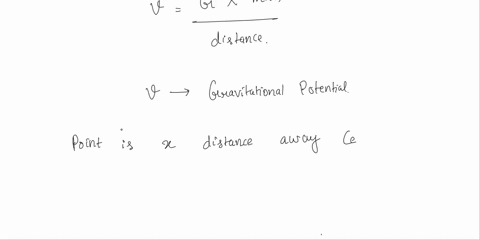 V =
distance.
V → Gravitational Potential
Point is x distance away Ce